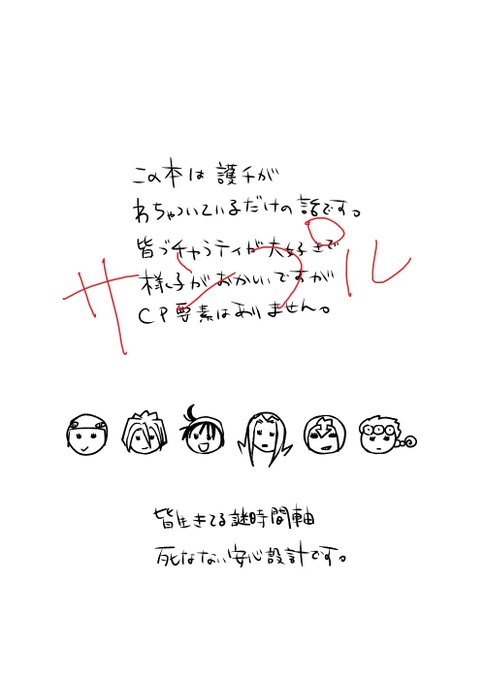 この本は 護チが
わちゃついているだけの話です。
皆ブチャラティが大好きで
様子がおかしいですが
CP要素はありません。
サンプル
皆生きてる謎時間軸
死なない安心設計です。